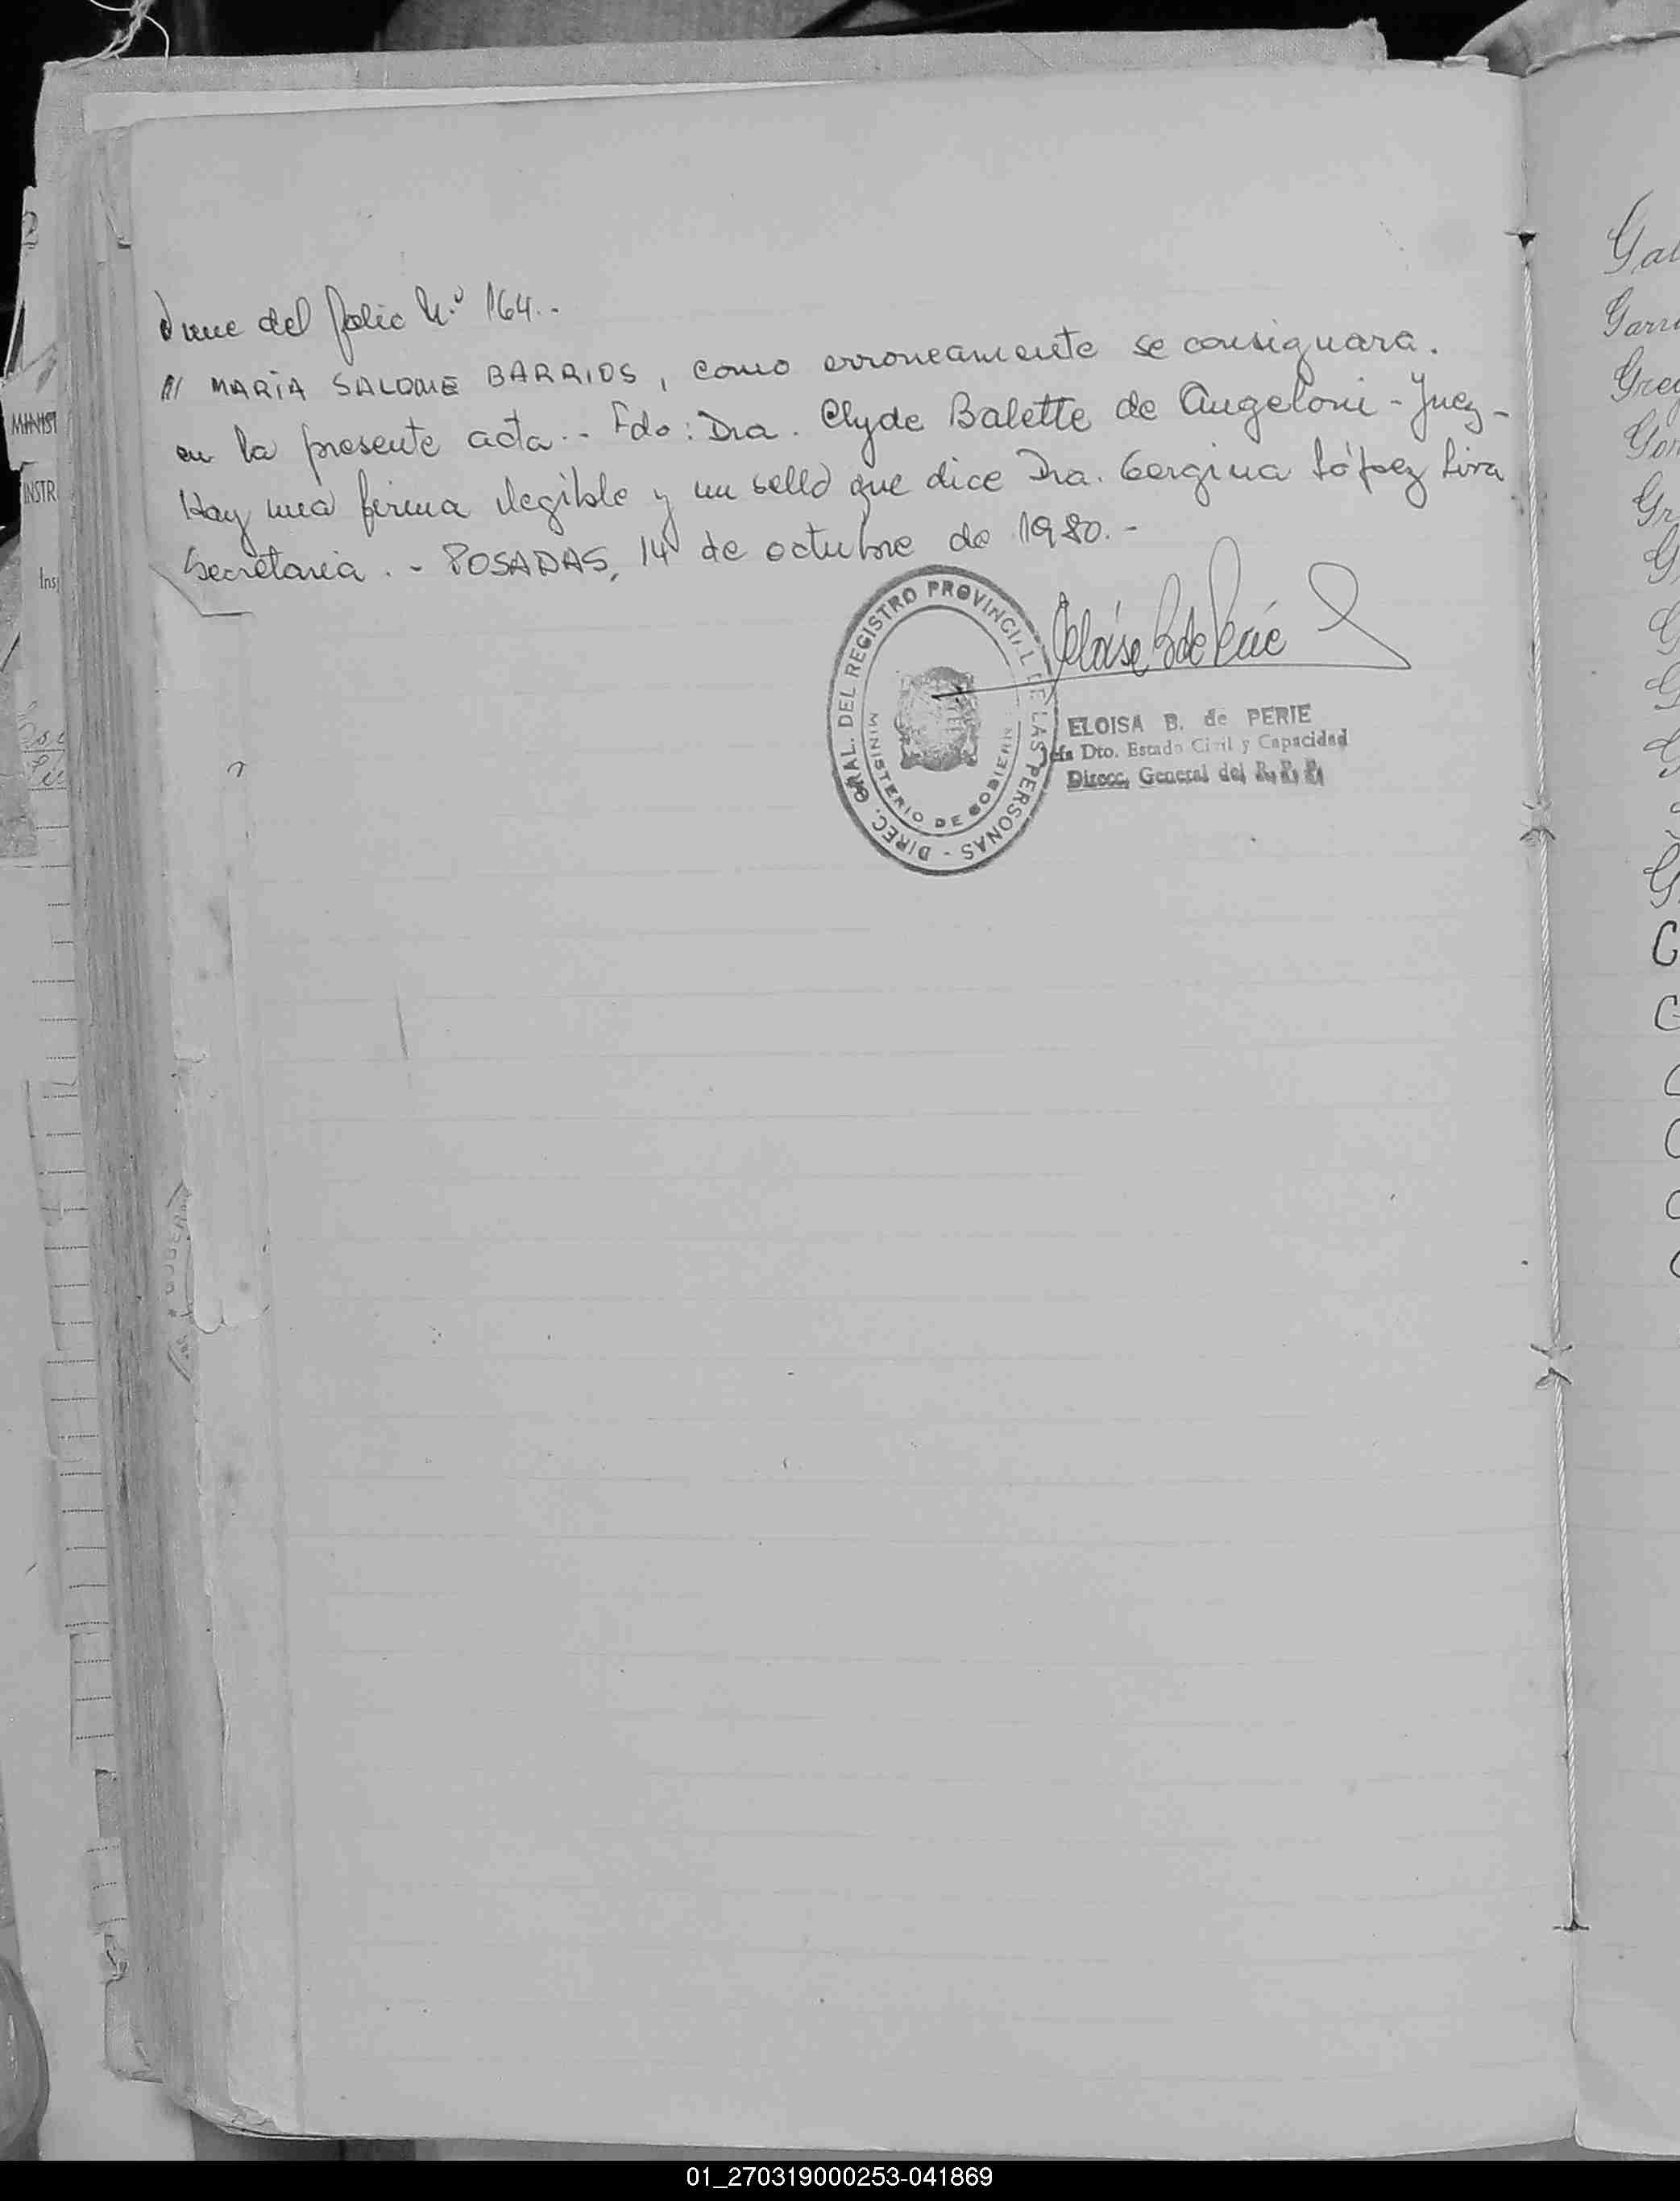 Viene del folio N.º 164.-
/// MARÍA SALOME BARRIOS, como erroneamente se consignara.
en la presente acta.- Fdo: Dra. Clyde Balette de Angeloni - Juez -
Hay una firma ilegible y un sello que dice Dra. Gergina López Liva
Secretaria. - POSADAS, 14 de octubre de 1980.-
DIREC. GRAL. DEL REGISTRO PROVINCIAL DE LAS PERSONAS -
MINISTERIO DE GOBIERNO
ELOISA B. de PERIE
Jefa Dto. Estado Civil y Capacidad
Direcc. General del R. P. P.
MINIST
INSTR
Ins
Gal
Garr
01_270319000253-041869